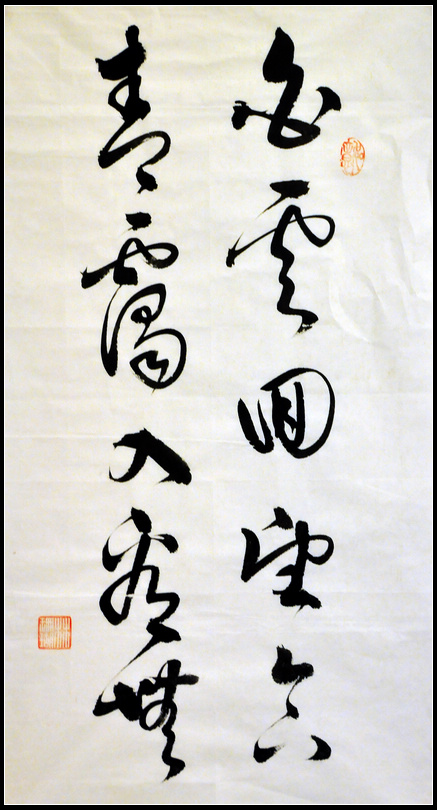 白雲回望合
青靄入看無